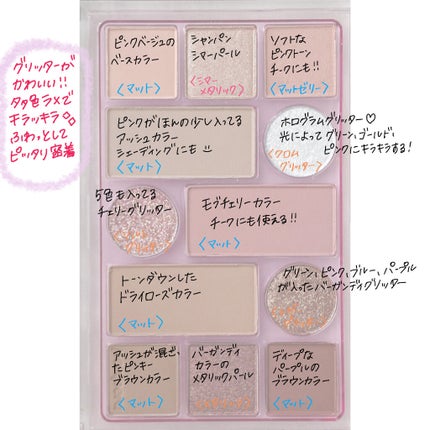 グリッターが
かわいい!!
タタ色ラメで
キラッキラ
ふわっとして
ピッタリ密着
ピンクベージュの
ベースカラー
〈マット〉
シャンパン
シマーパール
〈シマー
メタリック〉
ソフトな
ピンクトーン
チークにも!!
〈マットゼリー〉
ピンクがほんの少し入ってる
アッシュカラー
シェーディングにも
〈マット〉
ホログラムグリッター♡
光によってグリーン、ゴールド、
ピンクにキラキラする!
〈クロム
グリッター〉
5色も入ってる
チェリーグリッター
モヴチェリーカラー
チークにも使える!!
〈マット〉
トーンダウンした
ドライローズカラー
〈マット〉
グリーン、ピンク、ブルー、パープル
が入ったバーガンディグリッター
アッシュが混ざっ
たピンキー
ブラウンカラー
〈マット〉
バーガンディ
カラーの
メタリックパール
ディープな
パープルの
ブラウンカラー
〈マット〉